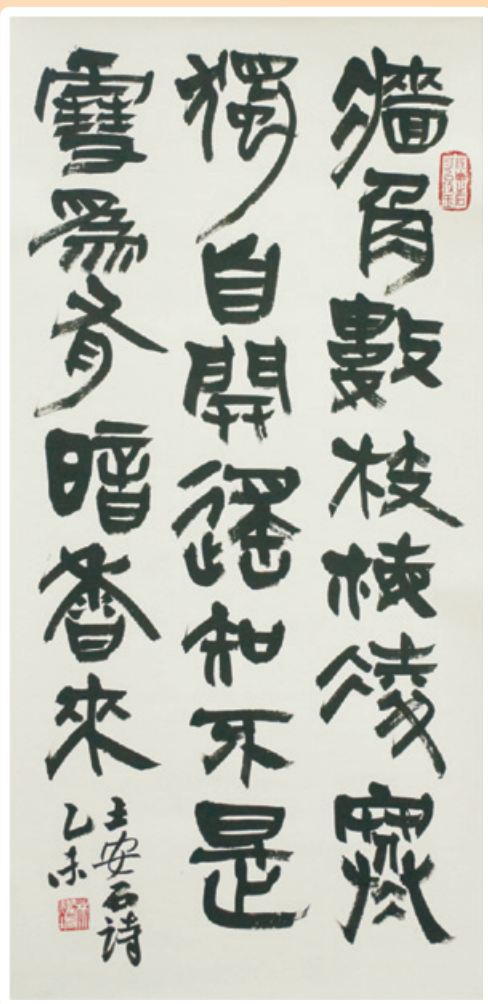 牆角數枝梅凌寒
獨自開遙知不是
雪爲有暗香來
王安石詩
乙未